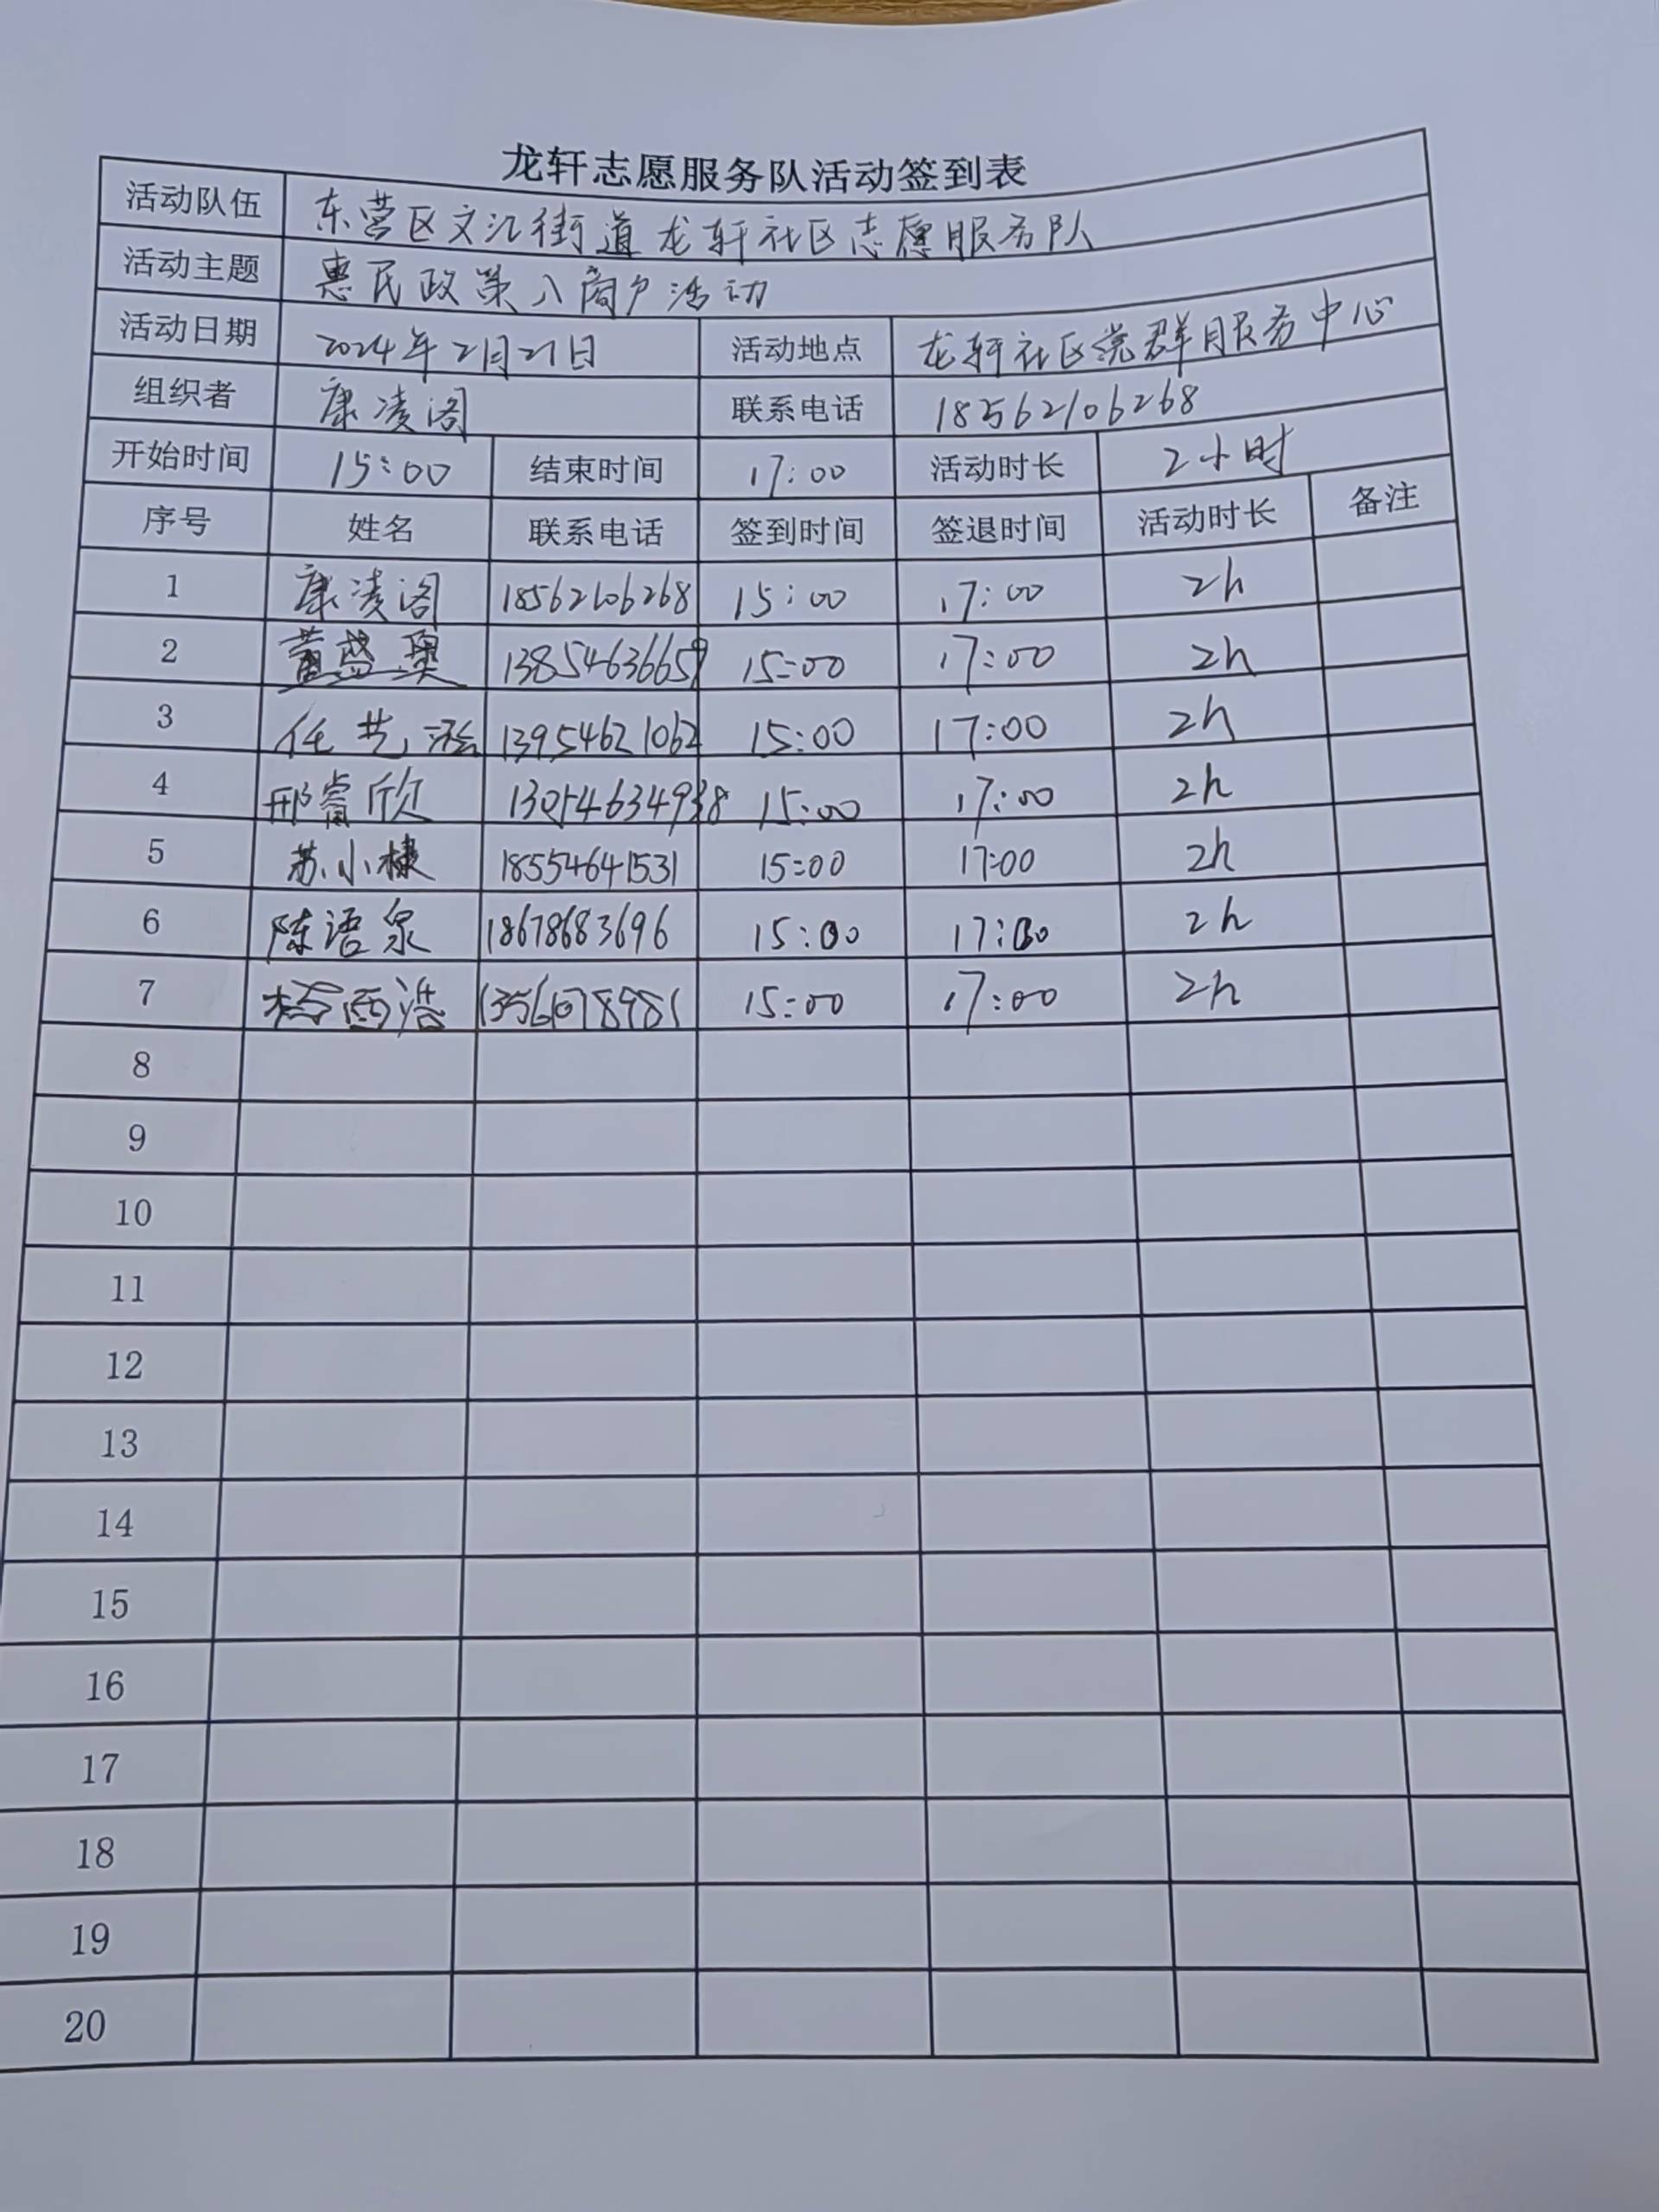 龙轩志愿服务队活动签到表
活动队伍 东营区文汇街道龙轩社区志愿服务队
活动主题 惠民政策入商户活动
活动日期 2024年2月21日 活动地点 龙轩社区党群服务中心
组织者 康凌阁 联系电话 18562106268
开始时间 15:00 结束时间 17:00 活动时长 2小时
序号 姓名 联系电话 签到时间 签退时间 活动时长 备注
1 康凌阁 18562106268 15:00 17:00 2h
2 黄盛奥 13854636659 15:00 17:00 2h
3 任艺涵 13954621062 15:00 17:00 2h
4 邢睿欣 13054634938 15:00 17:00 2h
5 苏小棣 18554641531 15:00 17:00 2h
6 陈语泉 18678683696 15:00 17:00 2h
7 15:00 17:00 2h
8
9
10
11
12
13
14
15
16
17
18
19
20